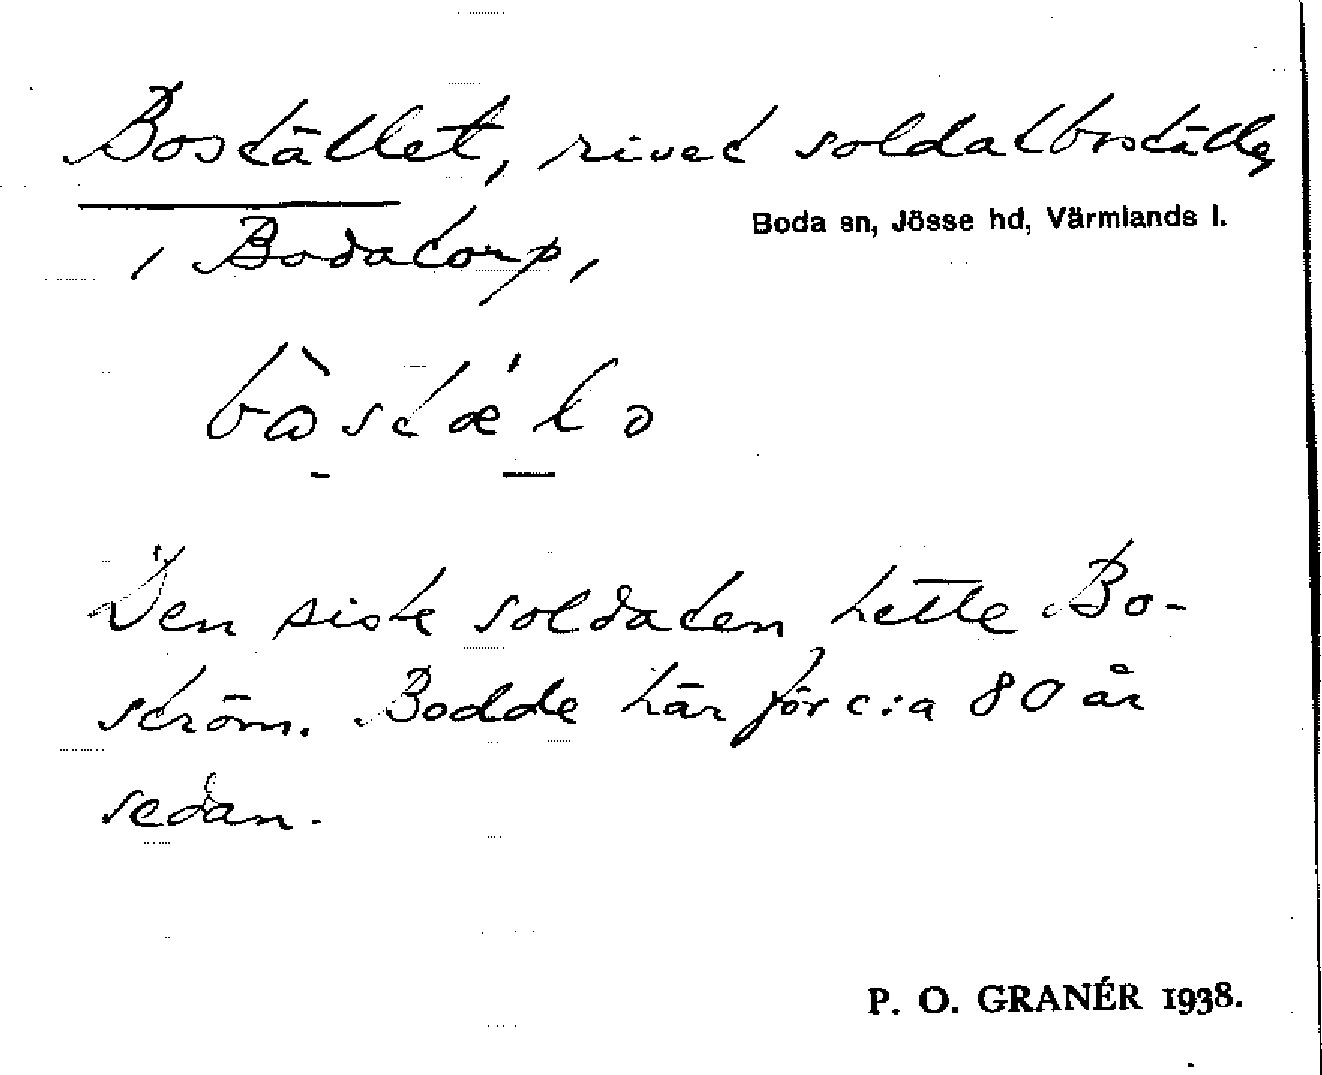 Bostället, rivet soldatboställe
Boda sn, Jösse hd, Värmlands l.
i Bodatorp,
Den siste soldaten hette Bo-
ström. Bodde här för c:a 80 år
sedan.
P. O. GRANÉR 1938.